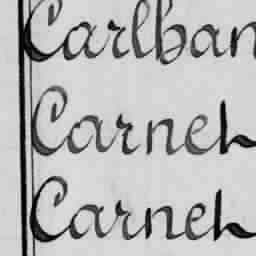 Carlban
Carneh
Carneh